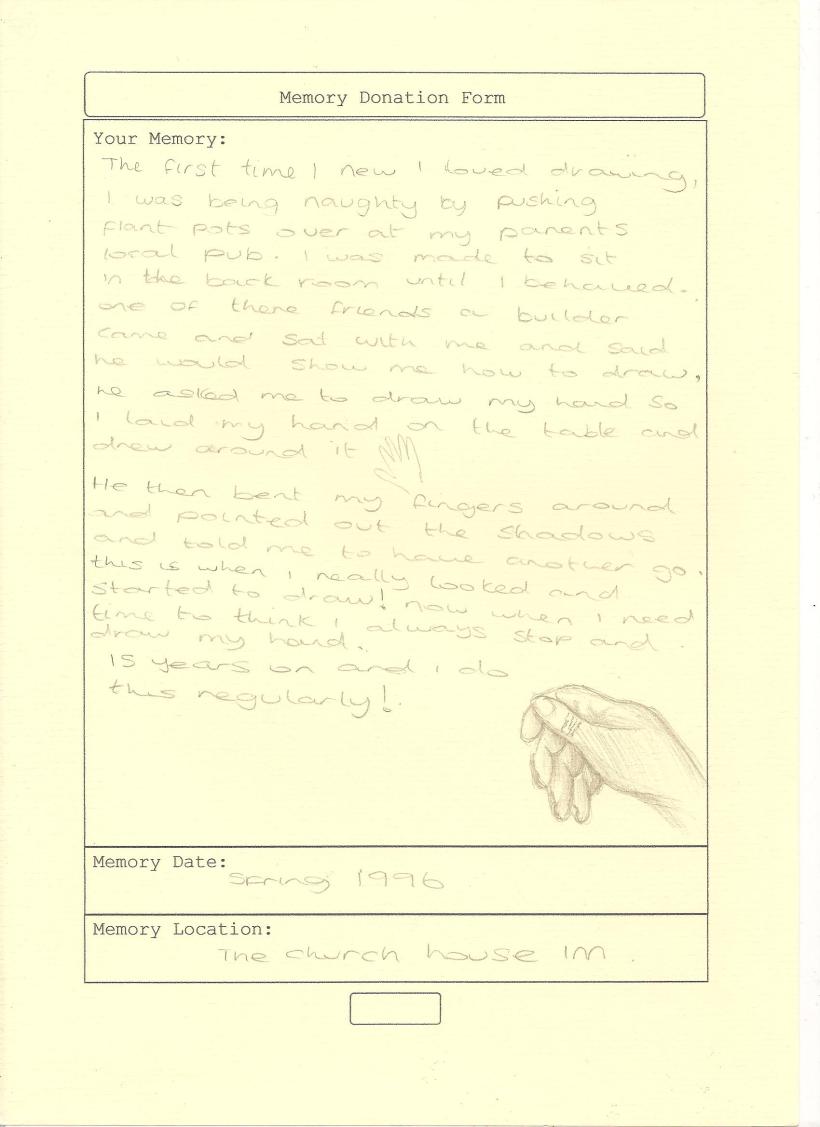 Memory Donation Form
Your Memory:
The first time I new I loved drawing,
I was being naughty by pushing
plant pots over at my parents
local pub. I was made to sit
in the back room until I behaved.
one of there friends a builder
came and sat with me and said
he would show me how to draw,
he asked me to draw my hand so
I laid my hand on the table and
drew around it
He then bent my fingers around
and pointed out the shadows
and told me to have another go.
this is when I really looked and
started to draw! now when I need
time to think I always stop and
draw my hand.
15 years on and I do
this regularly!
Memory Date:
Spring 1996
Memory Location:
The church house INN.